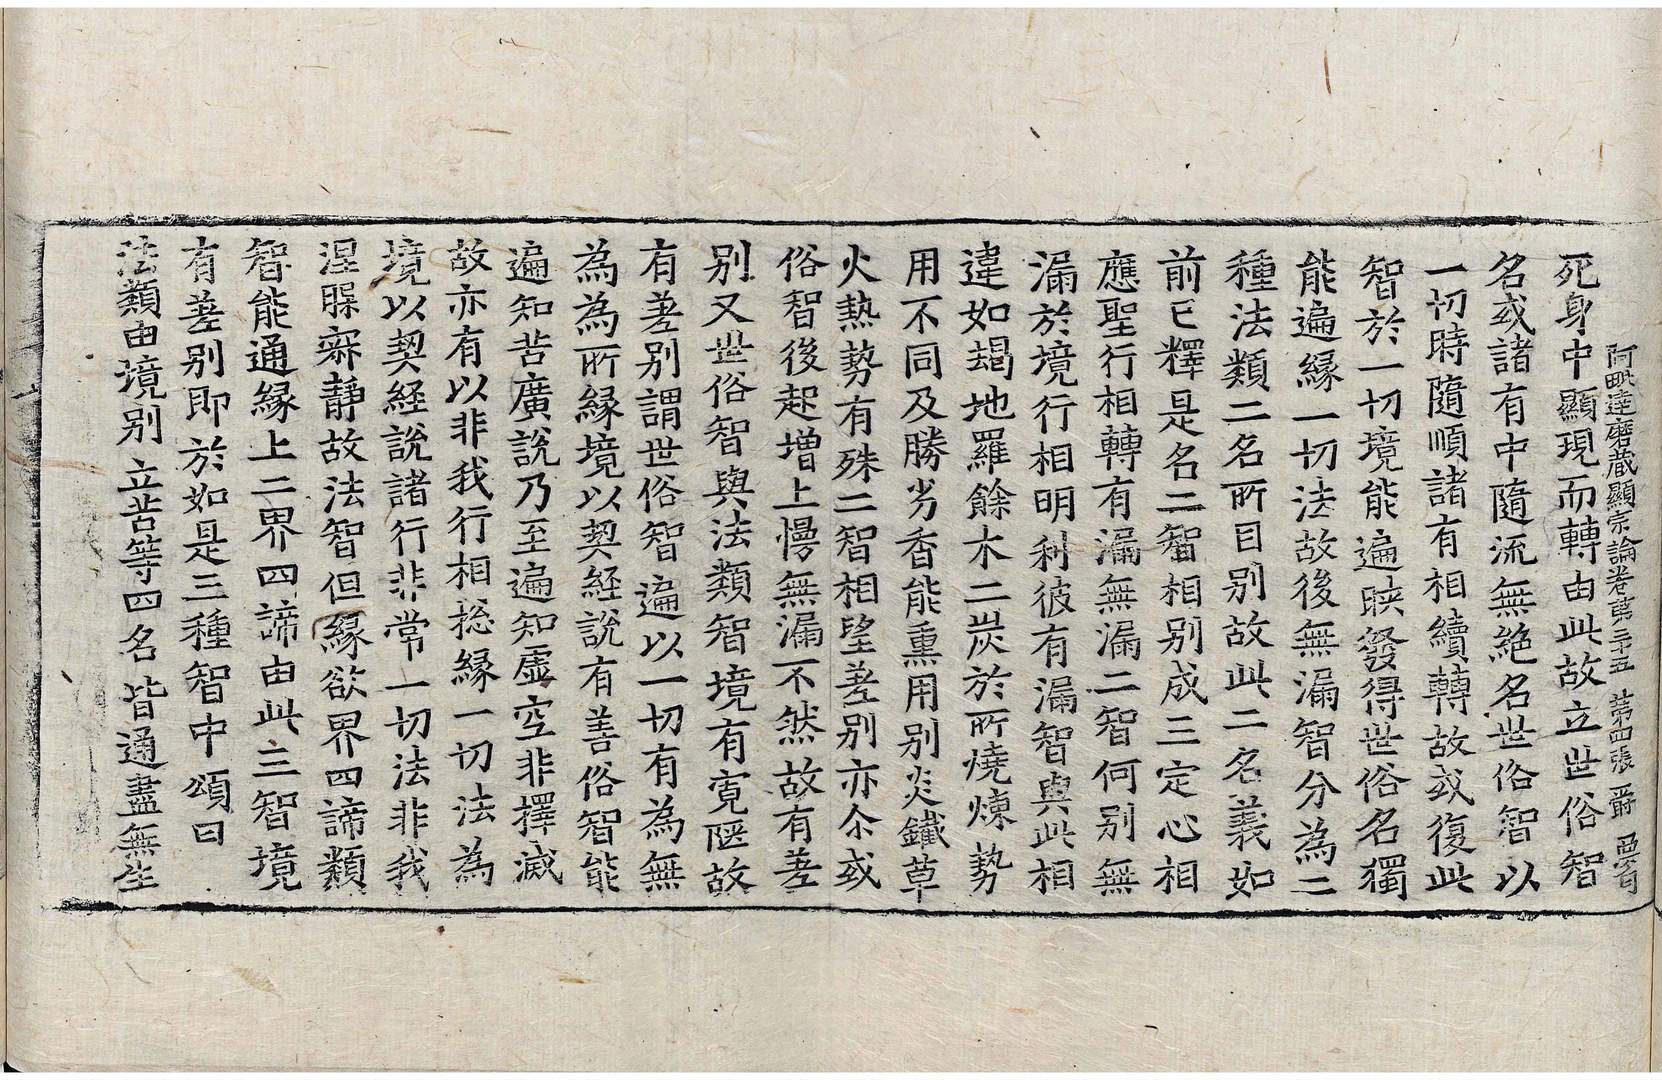 阿毗達磨藏顯宗論卷第三十五 第四張 爵
死身中顯現而轉由此故立世俗智
名或諸有中隨流無絶名世俗智以
一切時隨順諸有相續轉故或復此
智於一切境能遍映發得世俗名獨
能遍緣一切法故後無漏智分為二
種法類二名所目別故此二名義如
前已釋是名二智相別成三定心相
應聖行相轉有漏無漏二智何別無
漏於境行相明利彼有漏智與此相
違如朅地羅餘木二炭於所燒煉勢
用不同及勝劣香能熏用別炎鐵草
火熱勢有殊二智相望差別亦尒或
俗智後起增上慢無漏不然故有差
別又世俗智與法類智境有寬陿故
有差別謂世俗智遍以一切有為無
為為所緣境以契經說有善俗智能
遍知苦廣說乃至遍知虛空非擇滅
故亦有以非我行相捴緣一切法為
境以契經說諸行非常一切法非我
涅槃寂靜故法智但緣欲界四諦類
智能通緣上二界四諦由此三智境
有差別即於如是三種智中頌曰
法類由境別 立苦等四名 皆通盡無生